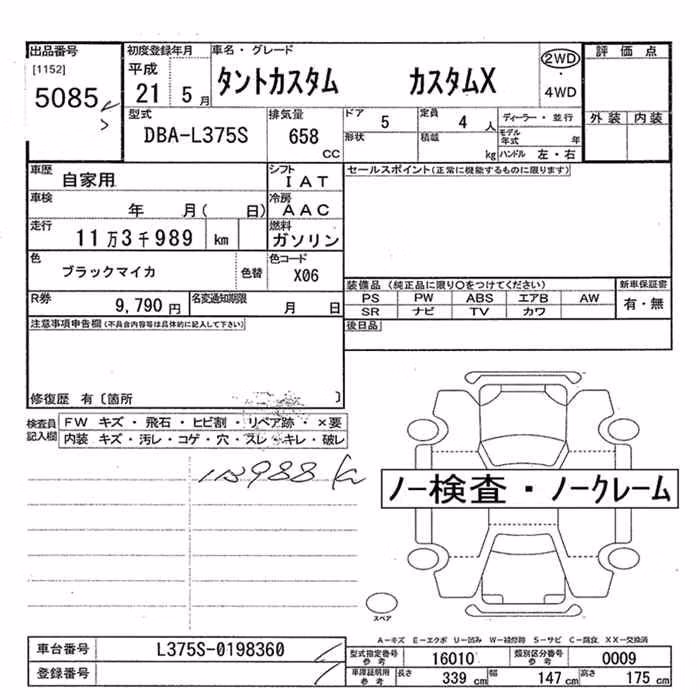 出品番号 初度登録年月 車名・グレード 2WD 評価点
[1152] 平成 タントカスタム カスタムX ・
5085 21 5月 4WD
型式 排気量 ドア 5 定員 4人 ディーラー・並行 外装 内装
DBA-L375S 658 CC 形状 積載 kg モデル年式 年
ハンドル 左・右
車歴 自家用 シフト IAT セールスポイント(正常に機能するものに限ります)
車検 年 月( 日) 冷房 AAC
走行 11万3千989 km 燃料 ガソリン
色 ブラックマイカ 色替 色コード X06
装備品 (純正品に限り○をつけてください) 新車保証書
R券 9,790円 名変通知期限 月 日 PS PW ABS エアB AW 有・無
SR ナビ TV カワ
注意事項申告欄(不具合内容等は具体的に記入して下さい) 後日品
修復歴 有〔箇所 〕
検査員記入欄 FW キズ・飛石・ヒビ割・リペア跡・×要
内装 キズ・汚レ・コゲ・穴・スレ・キレ・破レ
ノー検査・ノークレーム
スペア
A-キズ E-エクボ U-凹み W-補修跡 S-サビ C-腐食 XX-交換済
車台番号 L375S-0198360 型式指定番号 参考 16010 類別区分番号 参考 0009
登録番号 車庫証明用 参考 長さ 339 cm 幅 147 cm 高さ 175 cm